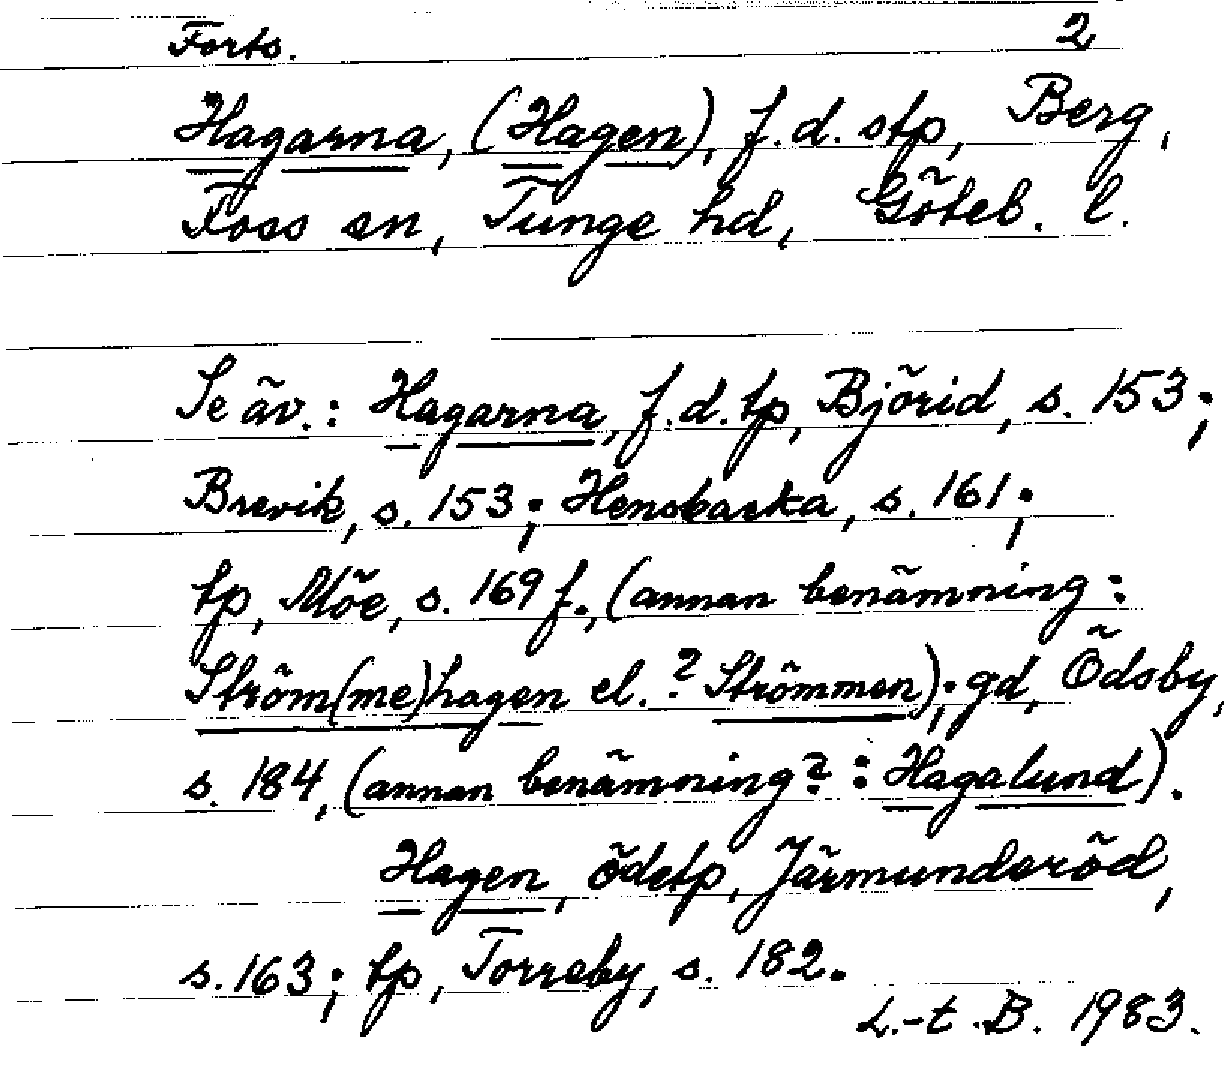 Forts. 2
Hagarna, (Hagen), f.d. stp, Berg,
Foss sn, Tunge hd, Göteb. l.
Se äv.: Hagarna, f.d. tp, Björid, s. 153;
Brevik, s. 153; Hensbacka, s. 161;
tp, Möe, s. 169 f., (annan benämning:
Ström(me)hagen el.? Strömmen); gd, Ödsby,
s. 184, (annan benämning?: Hagalund).
Hagen, ödetp, Järmunderöd,
s. 163; tp, Torreby, s. 182.
L.-t. B. 1983.